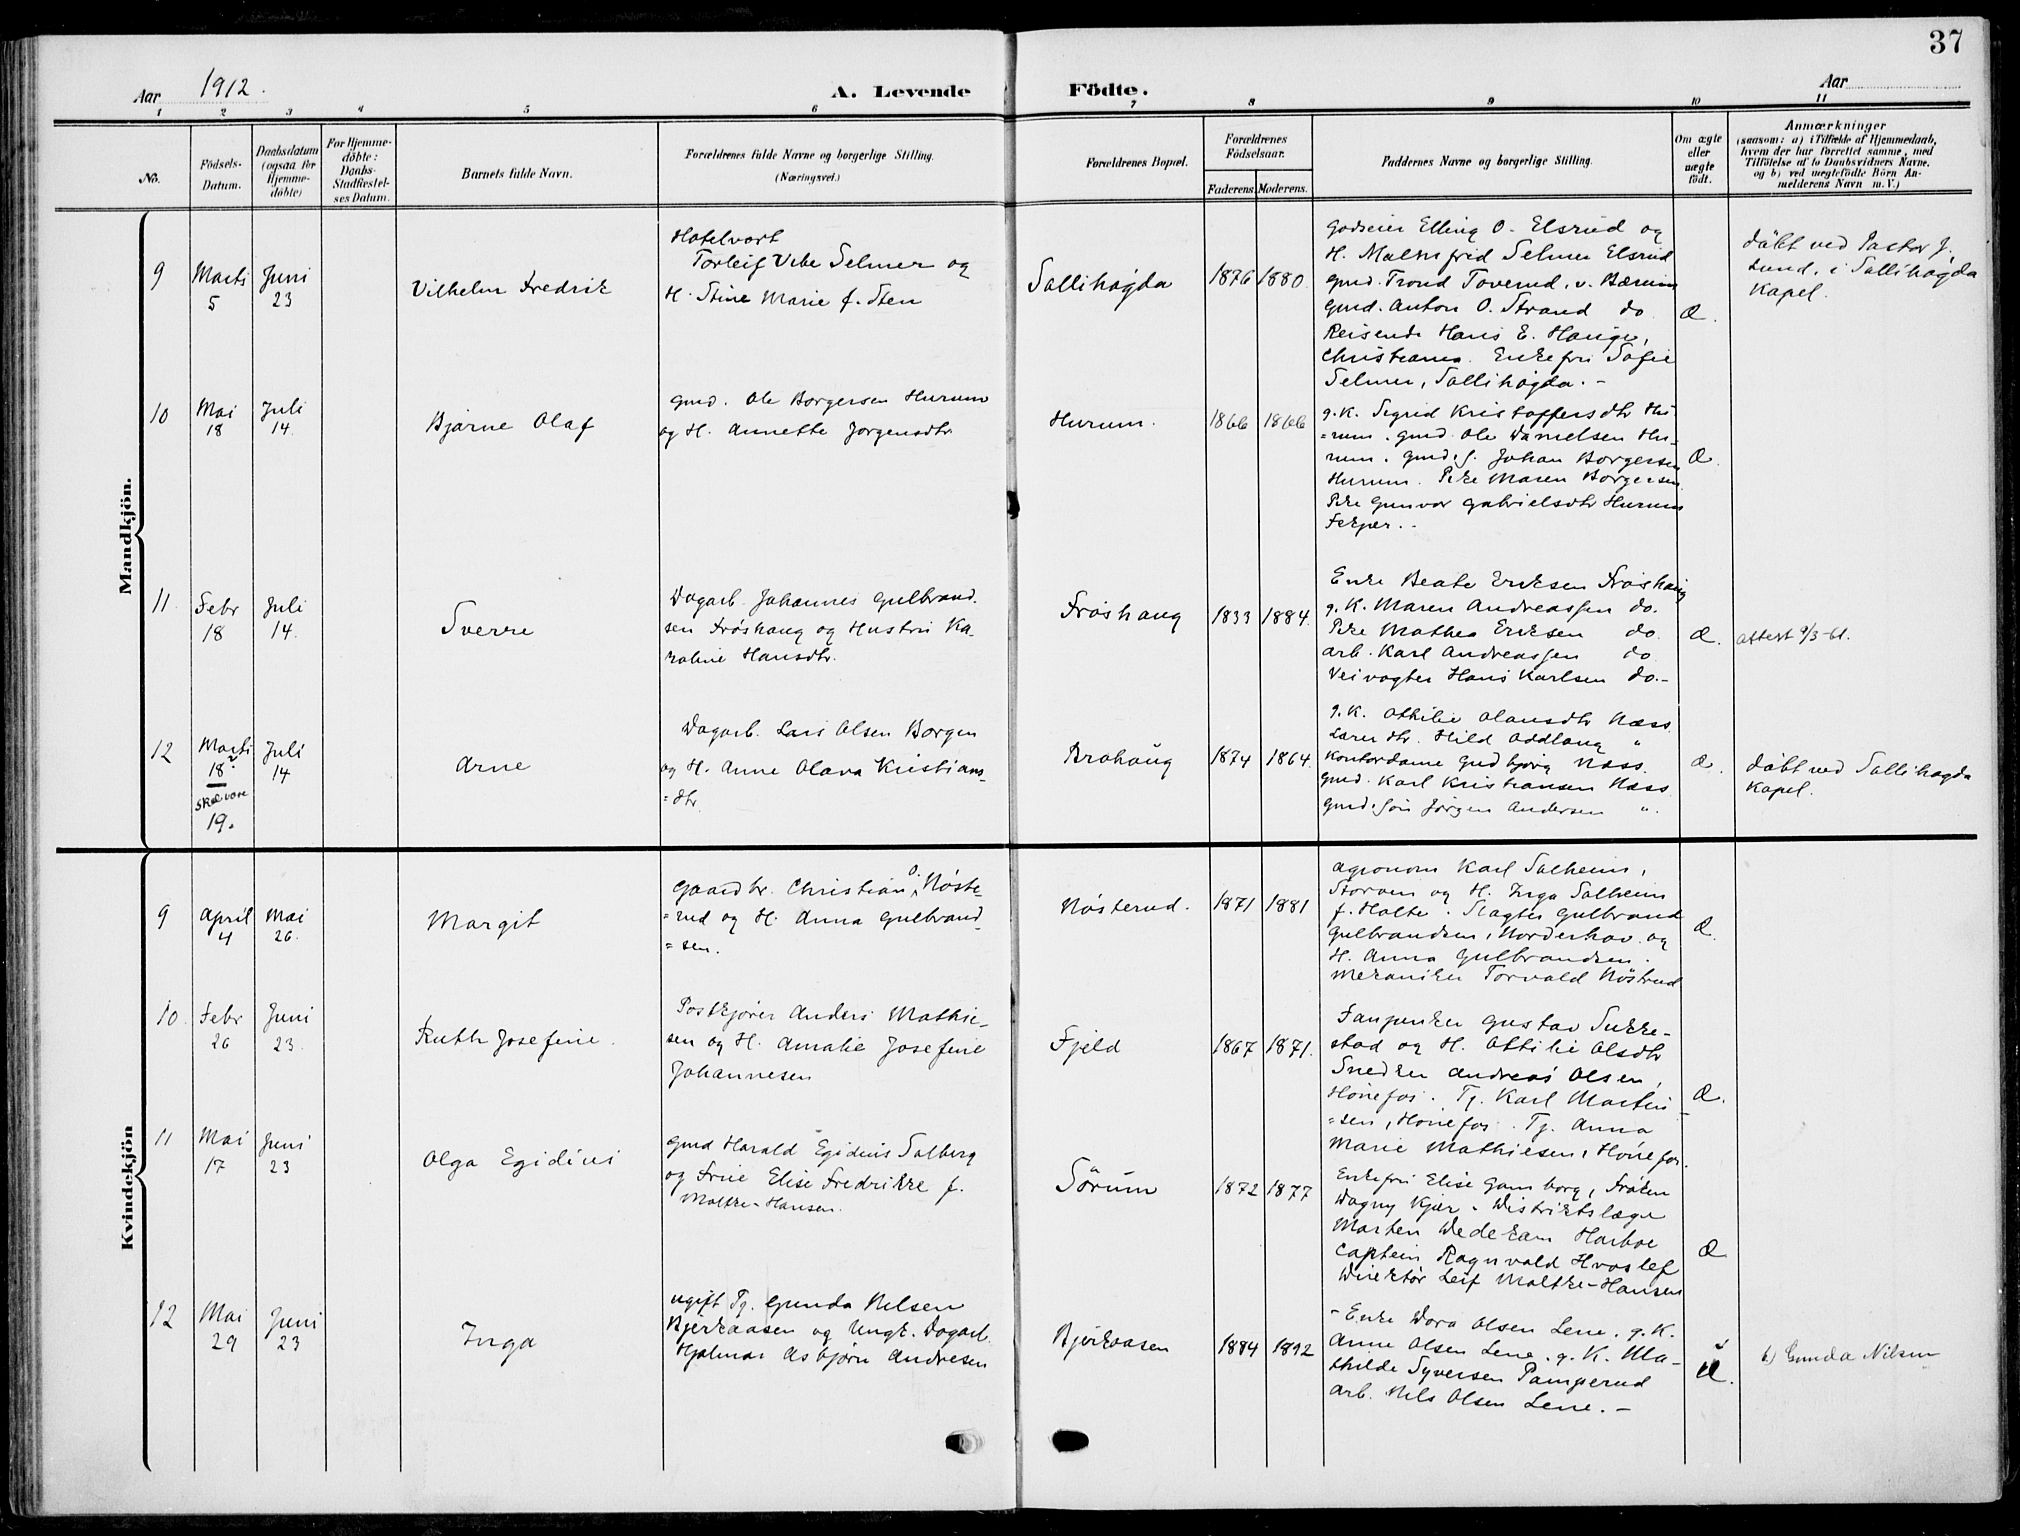 37
Aar 1912.
A. Levende
Födte.
Aar
1 2 3 4 5 6 7 8 9 10 11
No.
Födsels-
Datum.
Daabsdatum
(ogsaa for
Hjemme-
döbte)
For Hjemme-
döbte:
Daabs-
Stadfæstel-
ses Datum.
Barnets fulde Navn.
Forældrenes fulde Navne og borgerlige Stilling.
(Næringsvei.)
Forældrenes Bopæl.
Forældrenes
Födselsaar.
Faderens.
Moderens.
Faddernes Navne og borgerlige Stilling.
Om ægte
eller
uægte
født.
Anmærkninger
(saasom: a) i Tilfælde af Hjemmedaab,
hvem der har forrettet samme, med
Tilföielse af to Daabsvidners Navne,
og b) ved uægtefödte Börn An-
melderens Navn m. V.)
Mandkjön.
9
Marts
5
Juni
23
Vilhelm Fredrik
Hotelvært
Torleif Vibe Selmer og
H. Stine Marie f. Sten
Sollihøgda
1876
1880.
Godseier Elling O. Elsrud og
H. Malmfrid Selmer Elsrud
gmd. Trond Toverud, v. Bærum
gmd. Anton O. Strand do.
Reisende Hans E. Hauge,
Christiania. Enkefru Sofie
Selmer, Sollihøgda. -
Æ.
Døbt ved Pastor J.
Lund, i Sollihøgda
Kapel.
10
Mai
18
Juli
14.
Bjarne Olaf
gmd. Ole Borgersen Hurum
og H. Annette Jørgensdtr.
Hurum.
1866
1866
g. K. Sigrid Kristoffersdtr Hu-
=rum. gmd. Ole Danielsen Hu-
rum. gmd. s. Johan Borgersen
Hurum. Pike Maren Borgersen
Pike Gunvor Gabrielsdtr Hurum
Æ.
11
Febr
18
Juli
14.
Sverre
Dagarb. Johannes Gulbrand-
sen Frøshaug og Hustru Ka-
roline Hansdtr.
Frøshaug
1833
1884.
Enke Beate Eriksen Frøshaug
g. K. Maren Andreassen do.
Pike Mathea Eriksen do.
arb. Karl Andreassen do
Veivogter Hans Karlsen do. -
Æ.
attest 9/3-61.
12
Marts
18?
skal være
19.
Juli
14
Arne
Dagarb. Lars Olsen Borgen
og H. Anne Olava Kristians-
=dtr.
Brahaug
1874
1864.
g. K. Othilie Olausdtr Næss
Lærer dtr. Hild Oddlaug "
Kontordame Gudbjørg Næss.
gmd. Karl Kristiansen Næss
gmd. søn Jørgen Andersen ".
Æ.
Døbt ved Sollihøgda
Kapel.
Kvindekjön
9
April
4
Mai
26.
Margit
Gaardbr. Christian O. Nøste-
=rud og H. Anna Gulbrand-
=sen.
Nøsterud.
1871
1881
Agronom Karl Solheim,
Storøen og H. Inga Solheim
f. Holte. Slagter Gulbrand
Gulbrandsen, Norderhov. og
H. Anna Gulbrandsen.
Mekaniker Torvald Nøstrud
Æ.
10
Febr
26
Juni
23.
Ruth Josefine.
Postkjører Anders Mathie-
sen og H. Amalie Josefine
Johannesen
Fjeld
1867
1871.
Gustav Sukke-
stad og H. Othilie Olsdtr
Snedker Andreas Olsen,
Hønefos. Tj. Karl Martin-
=sen, Hønefos. Tj. Anna
Marie Mathiesen, Hønefos.
Æ.
11
Mai
17
Juni
23
Olga Egidius
gmd Harald Egidius Solberg
og Frue Elise Fredrikke f.
Moltke-Hansen.
Sørum
1872
1877
Enkefru Elise Gamborg, Frøken
Dagny Kjær. Distriktslæge
Morten Wedekam Harboe
Captein Ragnvald Hvoslef
Direktør Leif Moltke-Hansen
Æ
12
Mai
29
Juni
23
Inga
ugift Tj. Gunda Nilsen
Bjerkaasen og Ungk. Dagarb.
Hjalmar Asbjørn Andresen
Bjerkaasen
1884
1892
- Enke Dora Olsen Lene. g. K.
Anne Olsen Lene. g. K. Ma-
thilde Syversen Pamperud
Arb. Nils Olsen Lene. -
b) Gunda Nilsen